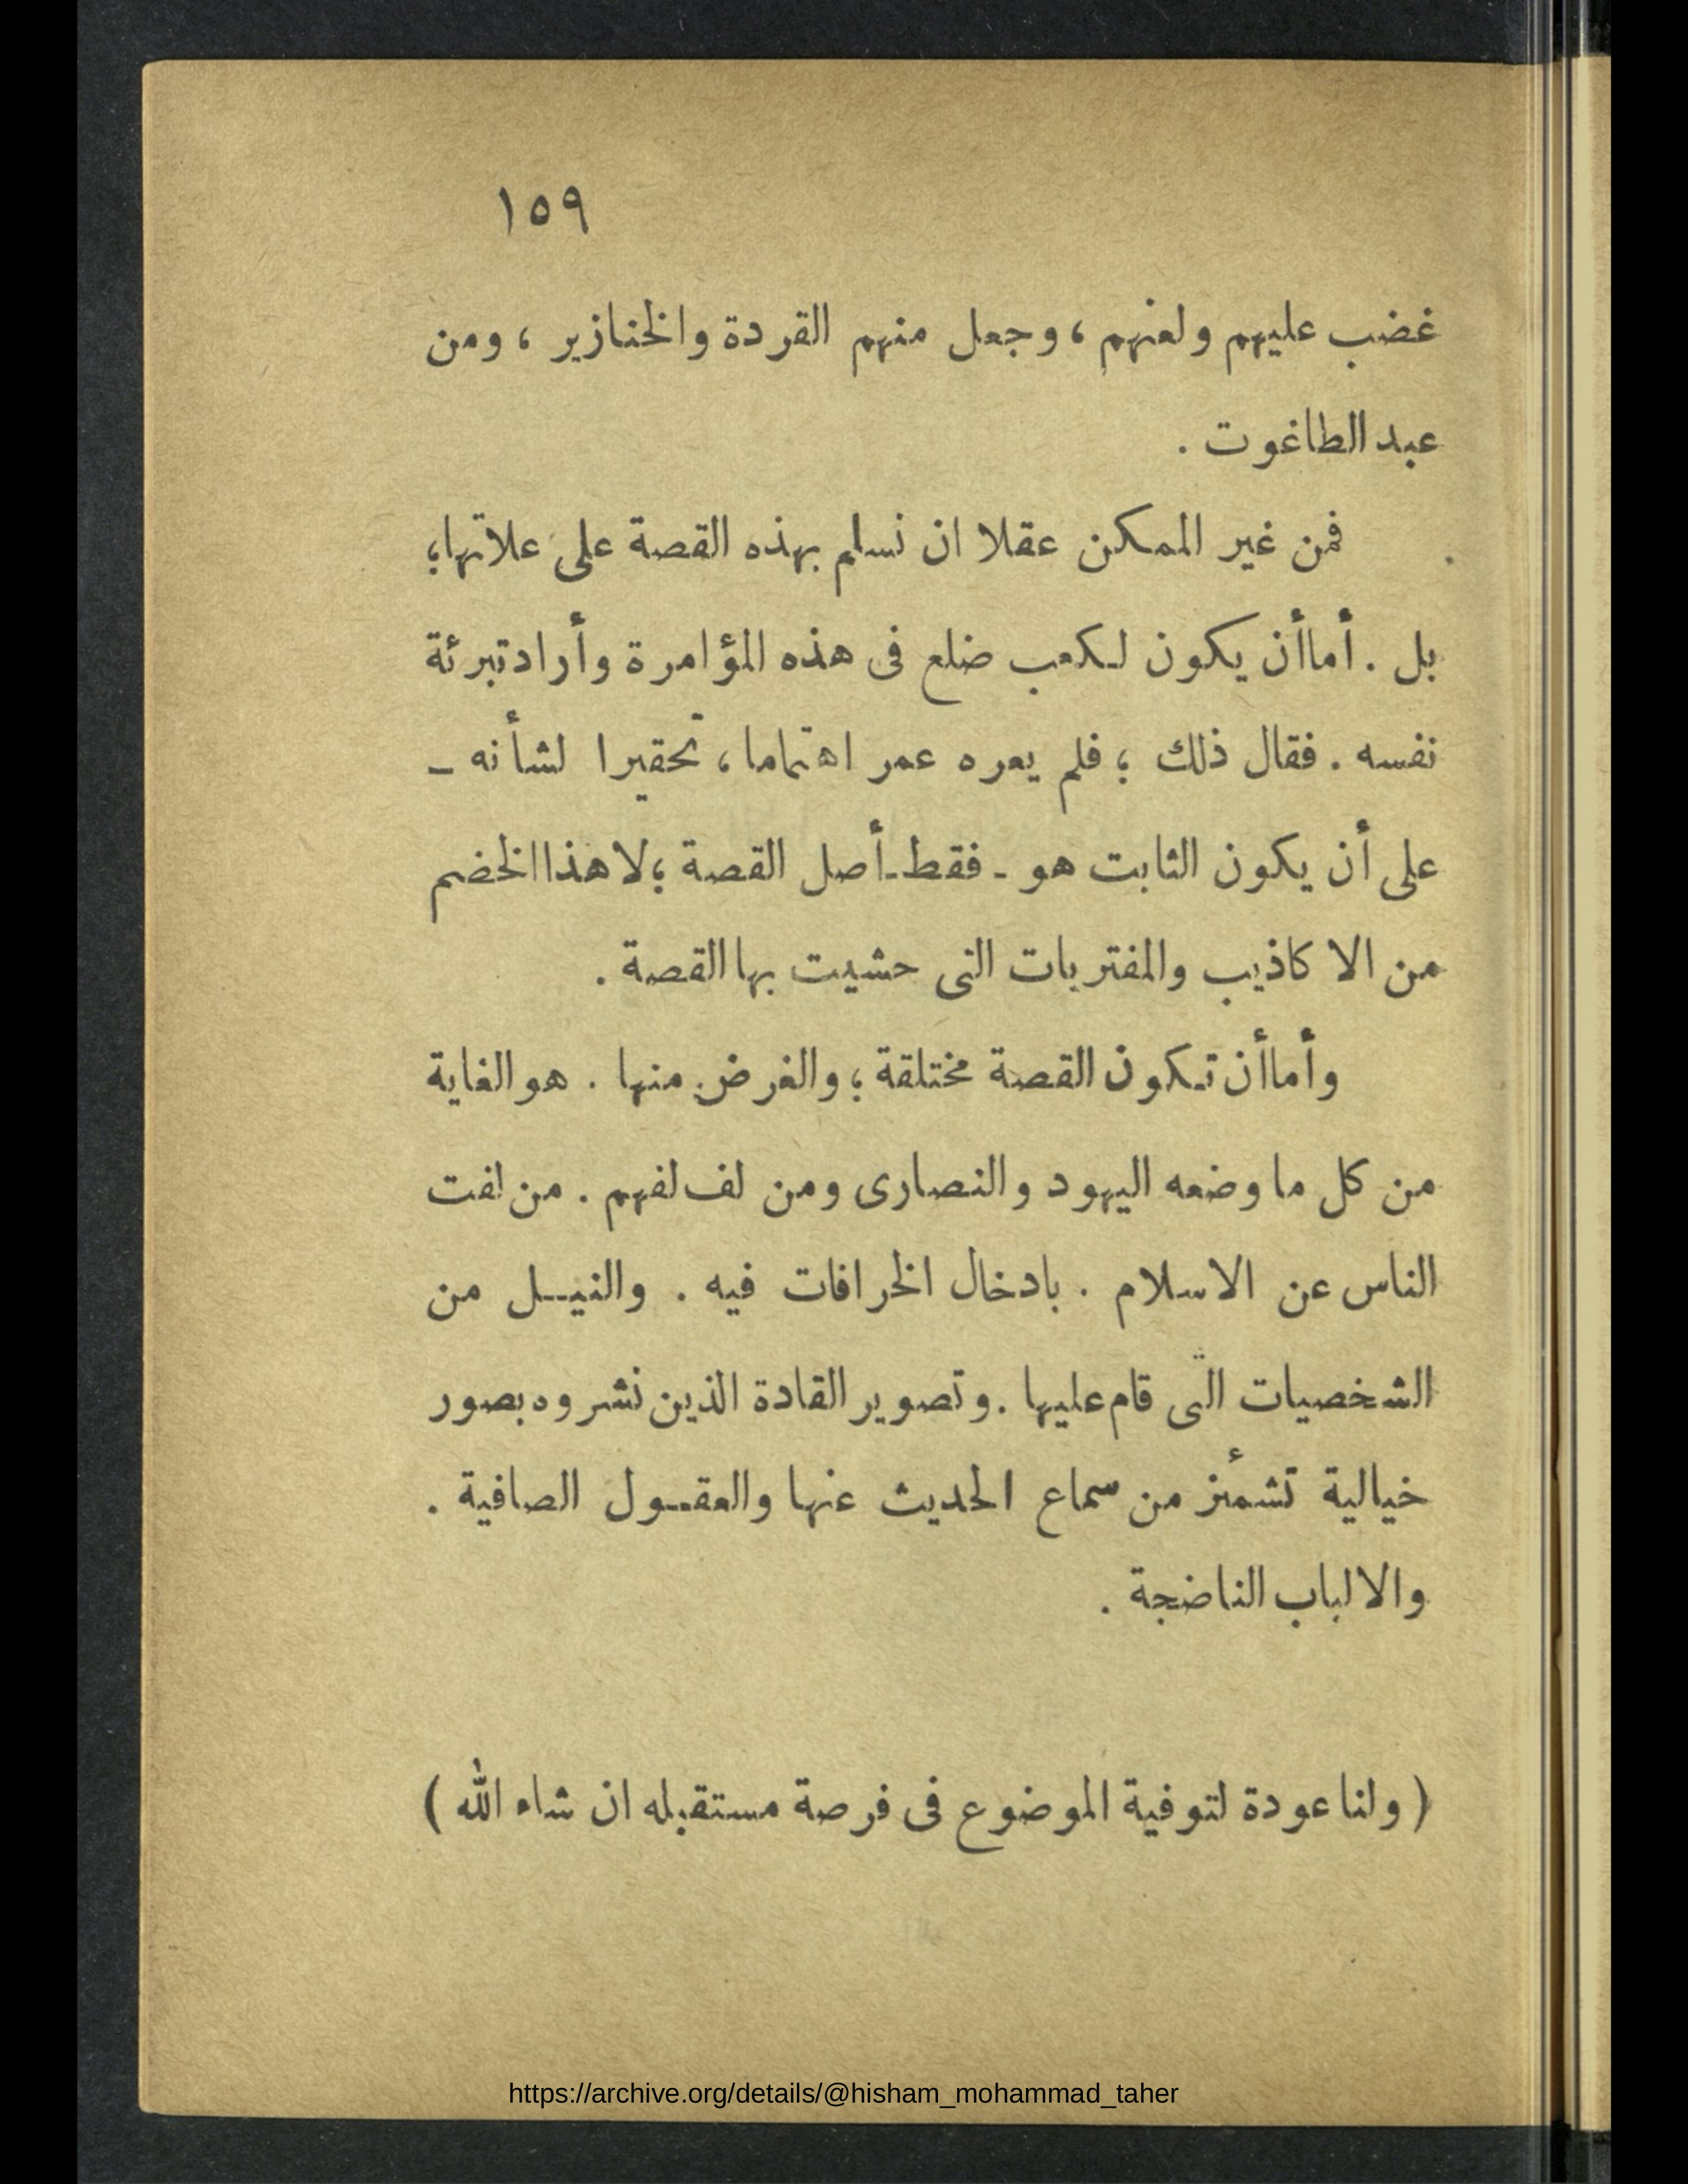 ١٥٩
غضب عليهم ولعنهم ، وجعل منهم القردة والخنازير ، ومن
عبد الطاغوت .
فمن غير الممكن عقلا ان نسلم بهذه القصة على علاتها؛
بل . أماأن يكون لكعب ضلع فى هذه المؤامرة وأراد تبرئة
نفسه . فقال ذلك ؛ فلم يعره عمر اهتماما ، تحقيرا لشأنه ـ
على أن يكون الثابت هو ـ فقط ـ أصل القصة ؛ لا هذا الخضم
من الاكاذيب والمفتريات التى حشيت بها القصة .
وأماأن تكون القصة مختلقة ؛ والغرض منها . هو الغاية
من كل ما وضعه اليهود والنصارى ومن لف لفهم . من لفت
الناس عن الاسلام . بادخال الخرافات فيه . والنيــل من
الشخصيات التى قام عليها . وتصوير القادة الذين نشروه بصور
خيالية تشمئز من سماع الحديث عنها والعقــول الصافية .
والالباب الناضجة .
( ولنا عودة لتوفية الموضوع فى فرصة مستقبله ان شاء الله )
https://archive.org/details/@hisham_mohammad_taher